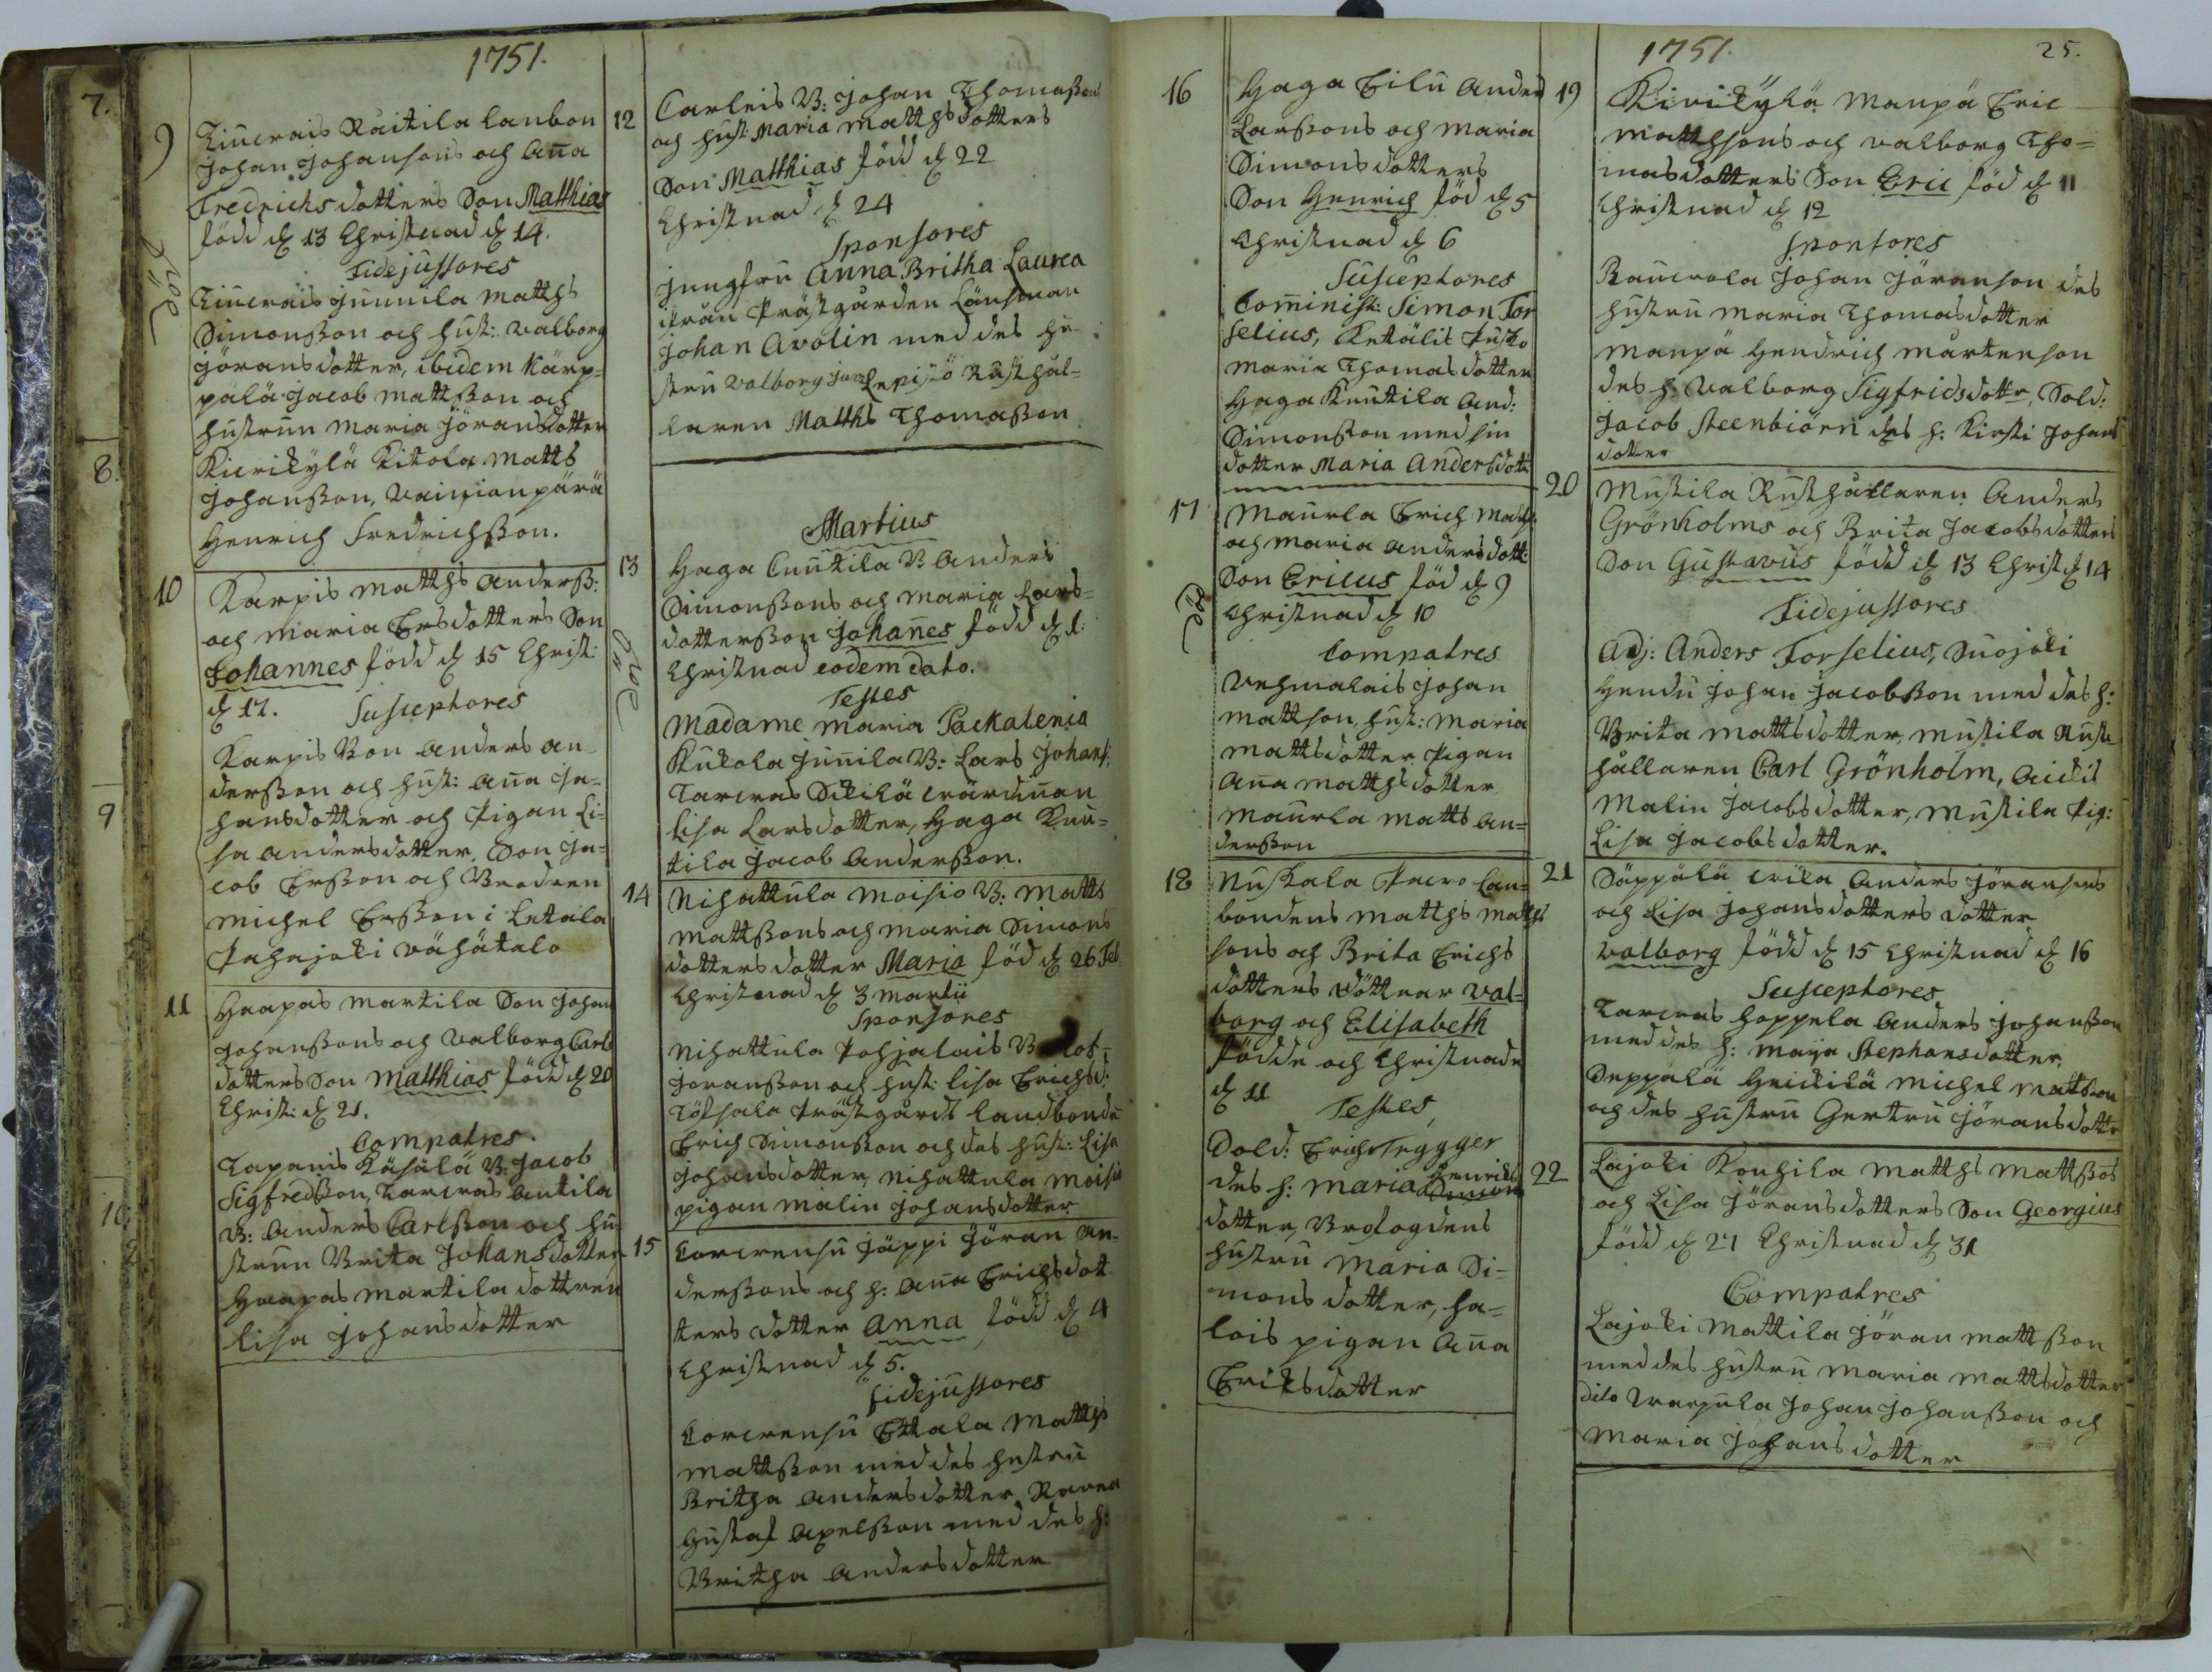 1751.
7.
8.
9
10
9
död
Liuerais Raitila lanbon
Johan Johansons och Aña
Fredrichs dotters Son Matthias
född d 13 Christnad d 14.
Fidejussores
Liuerais Junnila Matths
Simonsson och hust: Valborg
Jöransdotter, ibidem Kärp=
pälä Jacob Mattsson och
hustrun Maria Jöransdotter
Kierikylä Kitola Matts
Johansson, Vainionpärä
Henrich Fredrichsson.
10
Karpis Matths Anderss:
och Maria Ersdotters Son
Johannes född d 15 Christ:
d 17. Susceptores
Karpis Bon Anders An
dersson och hust: Aña Jo=
hansdotter och Pigan Li=
sa Andersdotter, Son Ja=
cob Ersson och Brodren
Michel Ersson i Letala
Pahajoki Vähätalo
11
Haapas Martila Son Johan
Johanssons och Valborg Carls
dotters Son Matthias född d 20
Christ: d 21.
Compatres.
Tapanis Käsälä B: Jacob
Sigfredsson, Tarvas Antila
B: Anders Carlsson och hu=
strun Brita Johansdotter,
Haapas Martila dottren
Lisa Johansdotter
12
Carleis B: Johan Thomassons
och hust: Maria Matths dotters
Son Matthias född d 22
Christnad d 24
Sponsores
Jungfru Anna Britha Laurea
ifrån Prästgården Länsman
Johan Avolin med des hu
stru Valborg Jac: Lepistö Rusthål=
laren Matths Thomasson
Martius
13
död
Haga Cnutila B Anders
Simonssons och Maria Lars=
dotters son Johañes född d 1.
Christnad eodem dato.
Testes
Madame Maria Packalenia
Kukola Juñila B: Lars Johans:
Tarvas Sikilä värdiñan
Lisa Larsdotter, Haga Knu=
tila Jacob Andersson.
14
Nihattula Moisio B: Matts
Mattssons och Maria Simons
dotters dotter Maria föd d 26 Feb
Christnad d 3 Martii
Sponsores
Nihattula Pohjalais B
Joransson och hust: Lisa Erichsd:
Töfsala Prästgårds landbonde
Erich Simonsson och des hust: Lisa
Johansdotter, Nihattula Moisio
pigan Malin Johansdotter
15
Corvensu Jäppi Jöran An=
derssons och h: Aña Erichsdot
ters dotter Anna född d 4
Christnad d 5.
fidejussores
Corvensu Ettala Matths
Mattsson med des hustru
Britha Andersdotter,
Gustaf Axelsson med des h:
Britha Andersdotter
16
Haga Eilu Anders
Larssons och Maria
Simonsdotters
Son Henrich föd d 5
Christnad d 6
Susceptores
Comiñist: Simon For
selius, Ketälis
Maria Thomasdotter
Haga Knutila And:
Simonsson med sin
dotter Maria Andersdott
17
död
Maurla Erich Matths:
och Maria Andersdott:
Son Ericus föd d 9
Christnad d 10
Compatres
Vehmalais Johan
Mattson, hust: Maria
Mattsdotter, Pigan
Aña Matthsdotter
Maurla Matts An=
dersson
18
Nuskala Pavo Lan=
bondens Matths Matths
sons och Brita Erichs
dotters döttrar Val=
borg och Elisabeth
födde och Christnade
d 11 Testes,
Sold: Erich Tryggger
des h: Maria Henrichs
Simons
dotter, Brofogdens
hustru Maria Si=
mons dotter, Ha=
lois pigan Aña
Eriksdotter
1751.
25.
19
Kirikylä Manpä Eric
Matthsons och Valborg Tho=
masdotters Son Eric föd d 11
Christnad d 12
Sponsores
Rauvola Johan Jöranson des
hustru Maria Thomasdotter
Manpä Hendrich Mårtenson
des h: Valborg Sigfridsdottr, Sold:
Jacob Steenbiörn des h: Kirsti Johans
dotter
20
Mustila Rusthållaren Anders
Grönholms och Brita Jacobsdotters
Son Gustavus född d 13 Christ d 14
Fidejussores
Adj: Anders Forselius, Suojoki
Hendu Johan Jacobsson med des h:
Brita Mattsdotter, Mustila Rust
hållaren Carl Grönholm,
Malin Jacobsdotter, Mustila Pig:
Lisa Jacobsdotter.
21
Säppälä Anders Jöransons
och Lisa Johansdotters dotter
Valborg född d 15 Christnad d 16
Susceptores
Tarvas Hoppela Anders Johansson
med des h: Maija Stephansdotter,
Seppälä Heikilä Michel Mattsson
och des hustru Gertru Jöransdottr
22
Lajoki Kouhila Matths Mattssos
och Lisa Jöransdotters Son Georgius
född d 27 Christnad d 31
Compatres
Lajoki Mattila Jöran Mattsson
med des hustru Maria Mattsdotter
dito Varpula Johan Johansson och
Maria Johansdotter